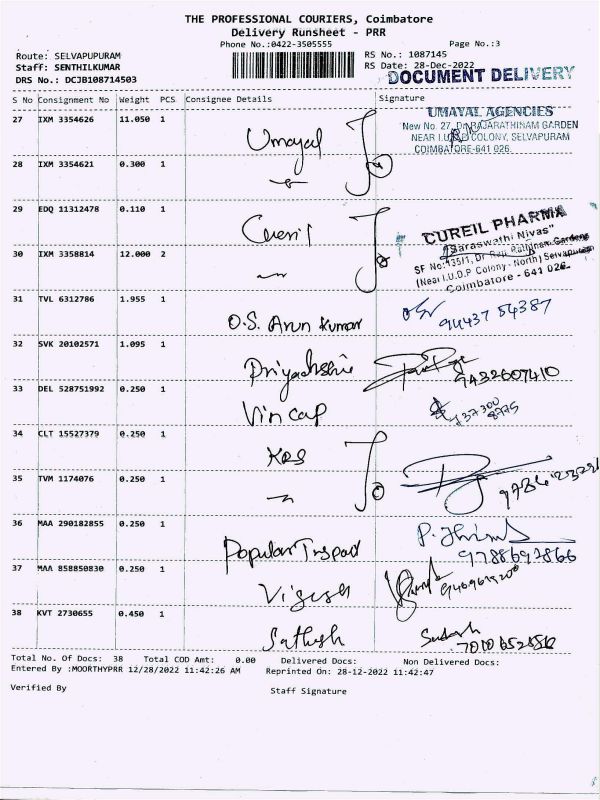 THE PROFESSIONAL COURIERS, Coimbatore
Delivery Runsheet - PRR
Phone No.:0422-3505555 Page No.:3
Route: SELVAPUPURAM RS No.: 1087145
Staff: SENTHILKUMAR RS Date: 28-Dec-2022
DRS No.: DCJB108714503 DOCUMENT DELIVERY
S No Consignment No Weight PCS Consignee Details Signature
27 IXM 3354626 11.050 1 Umayal
UMAYAL AGENCIES
New No. 27, Dr. RAJARATHINAM GARDEN
NEAR I.U.D.P COLONY, SELVAPURAM
COIMBATORE-641 026.
28 IXM 3354621 0.300 1
29 EDQ 11312478 0.110 1 Cureil
CUREIL PHARMA
"Saraswathi Nivas"
SF No: 135/1, Dr Raja Rathinam Gardens
(Near I.U.D.P Colony - North) Selvapuram
Coimbatore - 641 026.
30 IXM 3358814 12.000 2
31 TVL 6312786 1.955 1 O.S. Arun Kumar 94437 54387
32 SVK 20102571 1.095 1 9432607410
33 DEL 528751992 0.250 1 Vin cap
34 CLT 15527379 0.250 1 KRS
35 TVM 1174076 0.250 1
36 MAA 290182855 0.250 1 Popular 9788697866
37 MAA 858850830 0.250 1
38 KVT 2730655 0.450 1 Sathish
Total No. Of Docs: 38 Total COD Amt: 0.00 Delivered Docs: Non Delivered Docs:
Entered By :MOORTHYPRR 12/28/2022 11:42:26 AM Reprinted On: 28-12-2022 11:42:47
Verified By Staff Signature